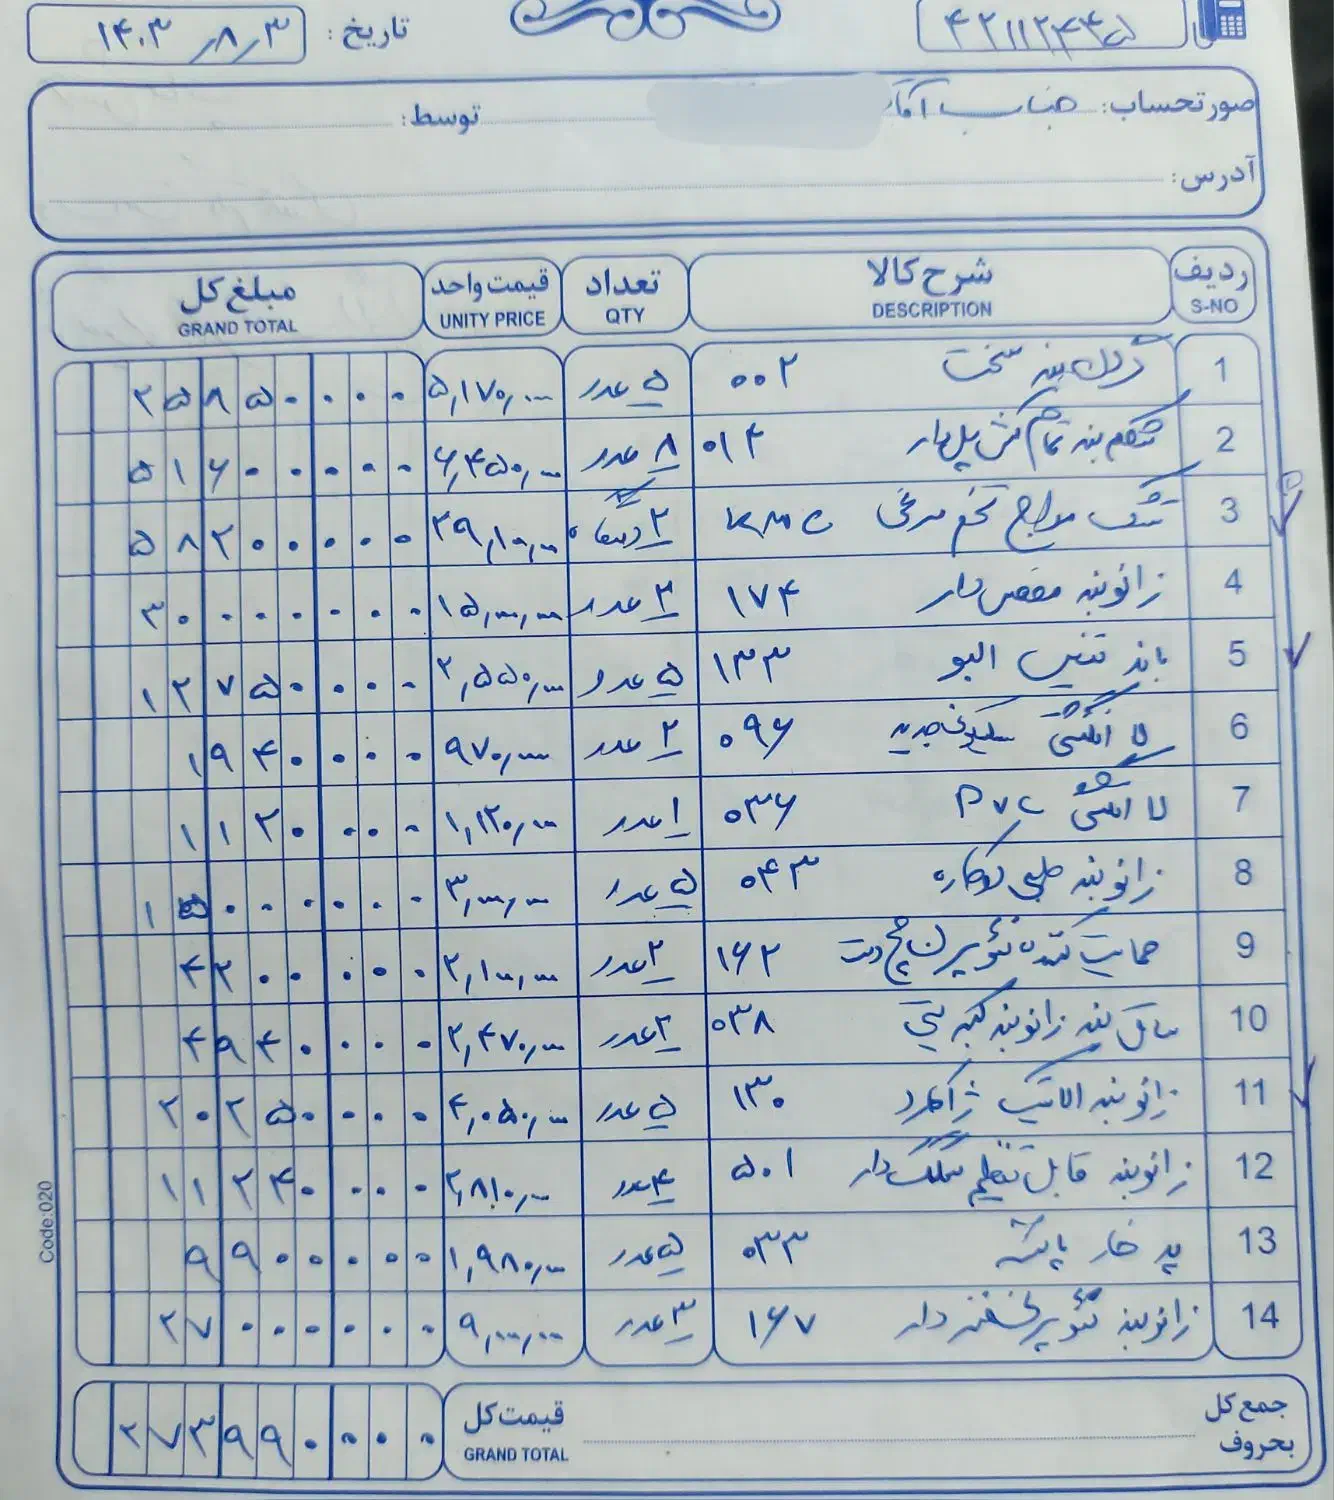 ۴۲۱۱۲۴۴۵
تاریخ: ۱۴۰۳٫۸٫۳
صورتحساب: جناب آقای توسط:
آدرس:
ردیف شرح کالا تعداد قیمت واحد مبلغ کل
S-NO DESCRIPTION QTY UNITY PRICE GRAND TOTAL
1 گردن بند سخت ۰۰۲ ۵ عدد ۵,۱۷۰,۰۰۰ ۲۵۸۵۰۰۰۰
2 شکم بند تمام کش پلی دار ۰۱۴ ۸ عدد ۶,۴۵۰,۰۰۰ ۵۱۶۰۰۰۰۰
3 تشک مواج تخم مرغی KMC ۲ دستگاه ۲۹,۱۰۰,۰۰۰ ۵۸۲۰۰۰۰۰
4 زانوبند مفصل دار ۱۷۴ ۲ عدد ۱۵,۰۰۰,۰۰۰ ۳۰۰۰۰۰۰۰
5 باند تنیس البو ۱۳۳ ۵ عدد ۲,۵۵۰,۰۰۰ ۱۲۷۵۰۰۰۰
6 لا انگشتی سیلیکونی جدید ۰۹۶ ۲ عدد ۹۷۰,۰۰۰ ۱۹۴۰۰۰۰
7 لا انگشتی PVC ۰۳۶ ۱ عدد ۱,۱۲۰,۰۰۰ ۱۱۲۰۰۰۰
8 زانوبند طبی ۰۴۳ ۵ عدد ۳,۰۰۰,۰۰۰ ۱۵۰۰۰۰۰۰
9 حمایت کننده نئوپرن مچ دست ۱۶۲ ۲ عدد ۲,۱۰۰,۰۰۰ ۴۲۰۰۰۰۰
10 ساق بند زانوبند کبریتی ۰۳۸ ۲ عدد ۲,۴۷۰,۰۰۰ ۴۹۴۰۰۰۰
11 زانوبند الاستیک ژاکارد ۱۳۰ ۵ عدد ۴,۰۵۰,۰۰۰ ۲۰۲۵۰۰۰۰
12 زانوبند قابل تنظیم کشکک دار ۵۰۱ ۴ عدد ۲,۸۱۰,۰۰۰ ۱۱۲۴۰۰۰۰
13 پد خار پاشنه ۰۳۳ ۵ عدد ۱,۹۸۰,۰۰۰ ۹۹۰۰۰۰۰
14 زانوبند نئوپرنی فنر دار ۱۶۷ ۳ عدد ۹,۰۰۰,۰۰۰ ۲۷۰۰۰۰۰۰
جمع کل بحروف قیمت کل ۲۷۳۹۹۰۰۰۰
GRAND TOTAL
Code:020